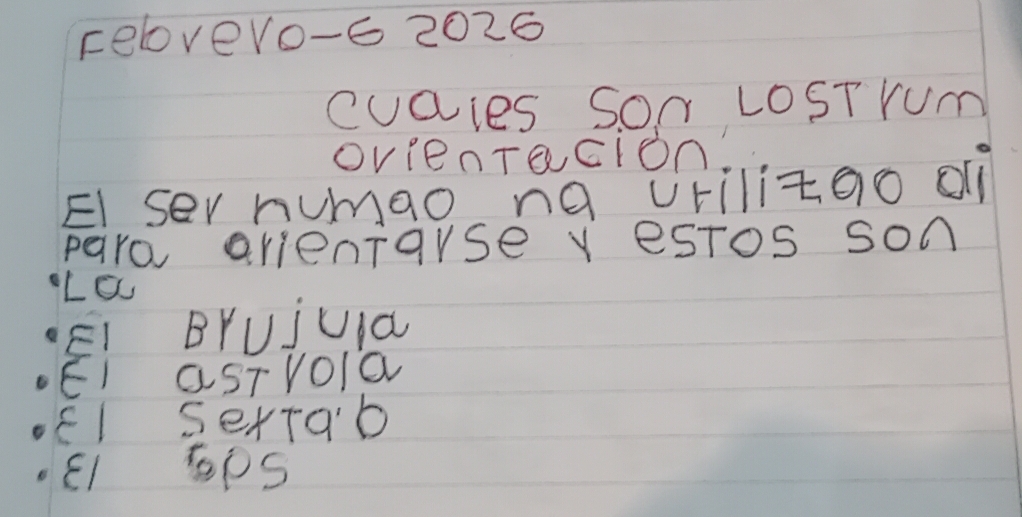 Febrero-6 2026
Cuales son LosTrum
orienTación
El ser humao ha utilizao di
para arienTarse y esTos son
•La
•El Brujula
•El asTrola
•El SexTa'b
•El GPS